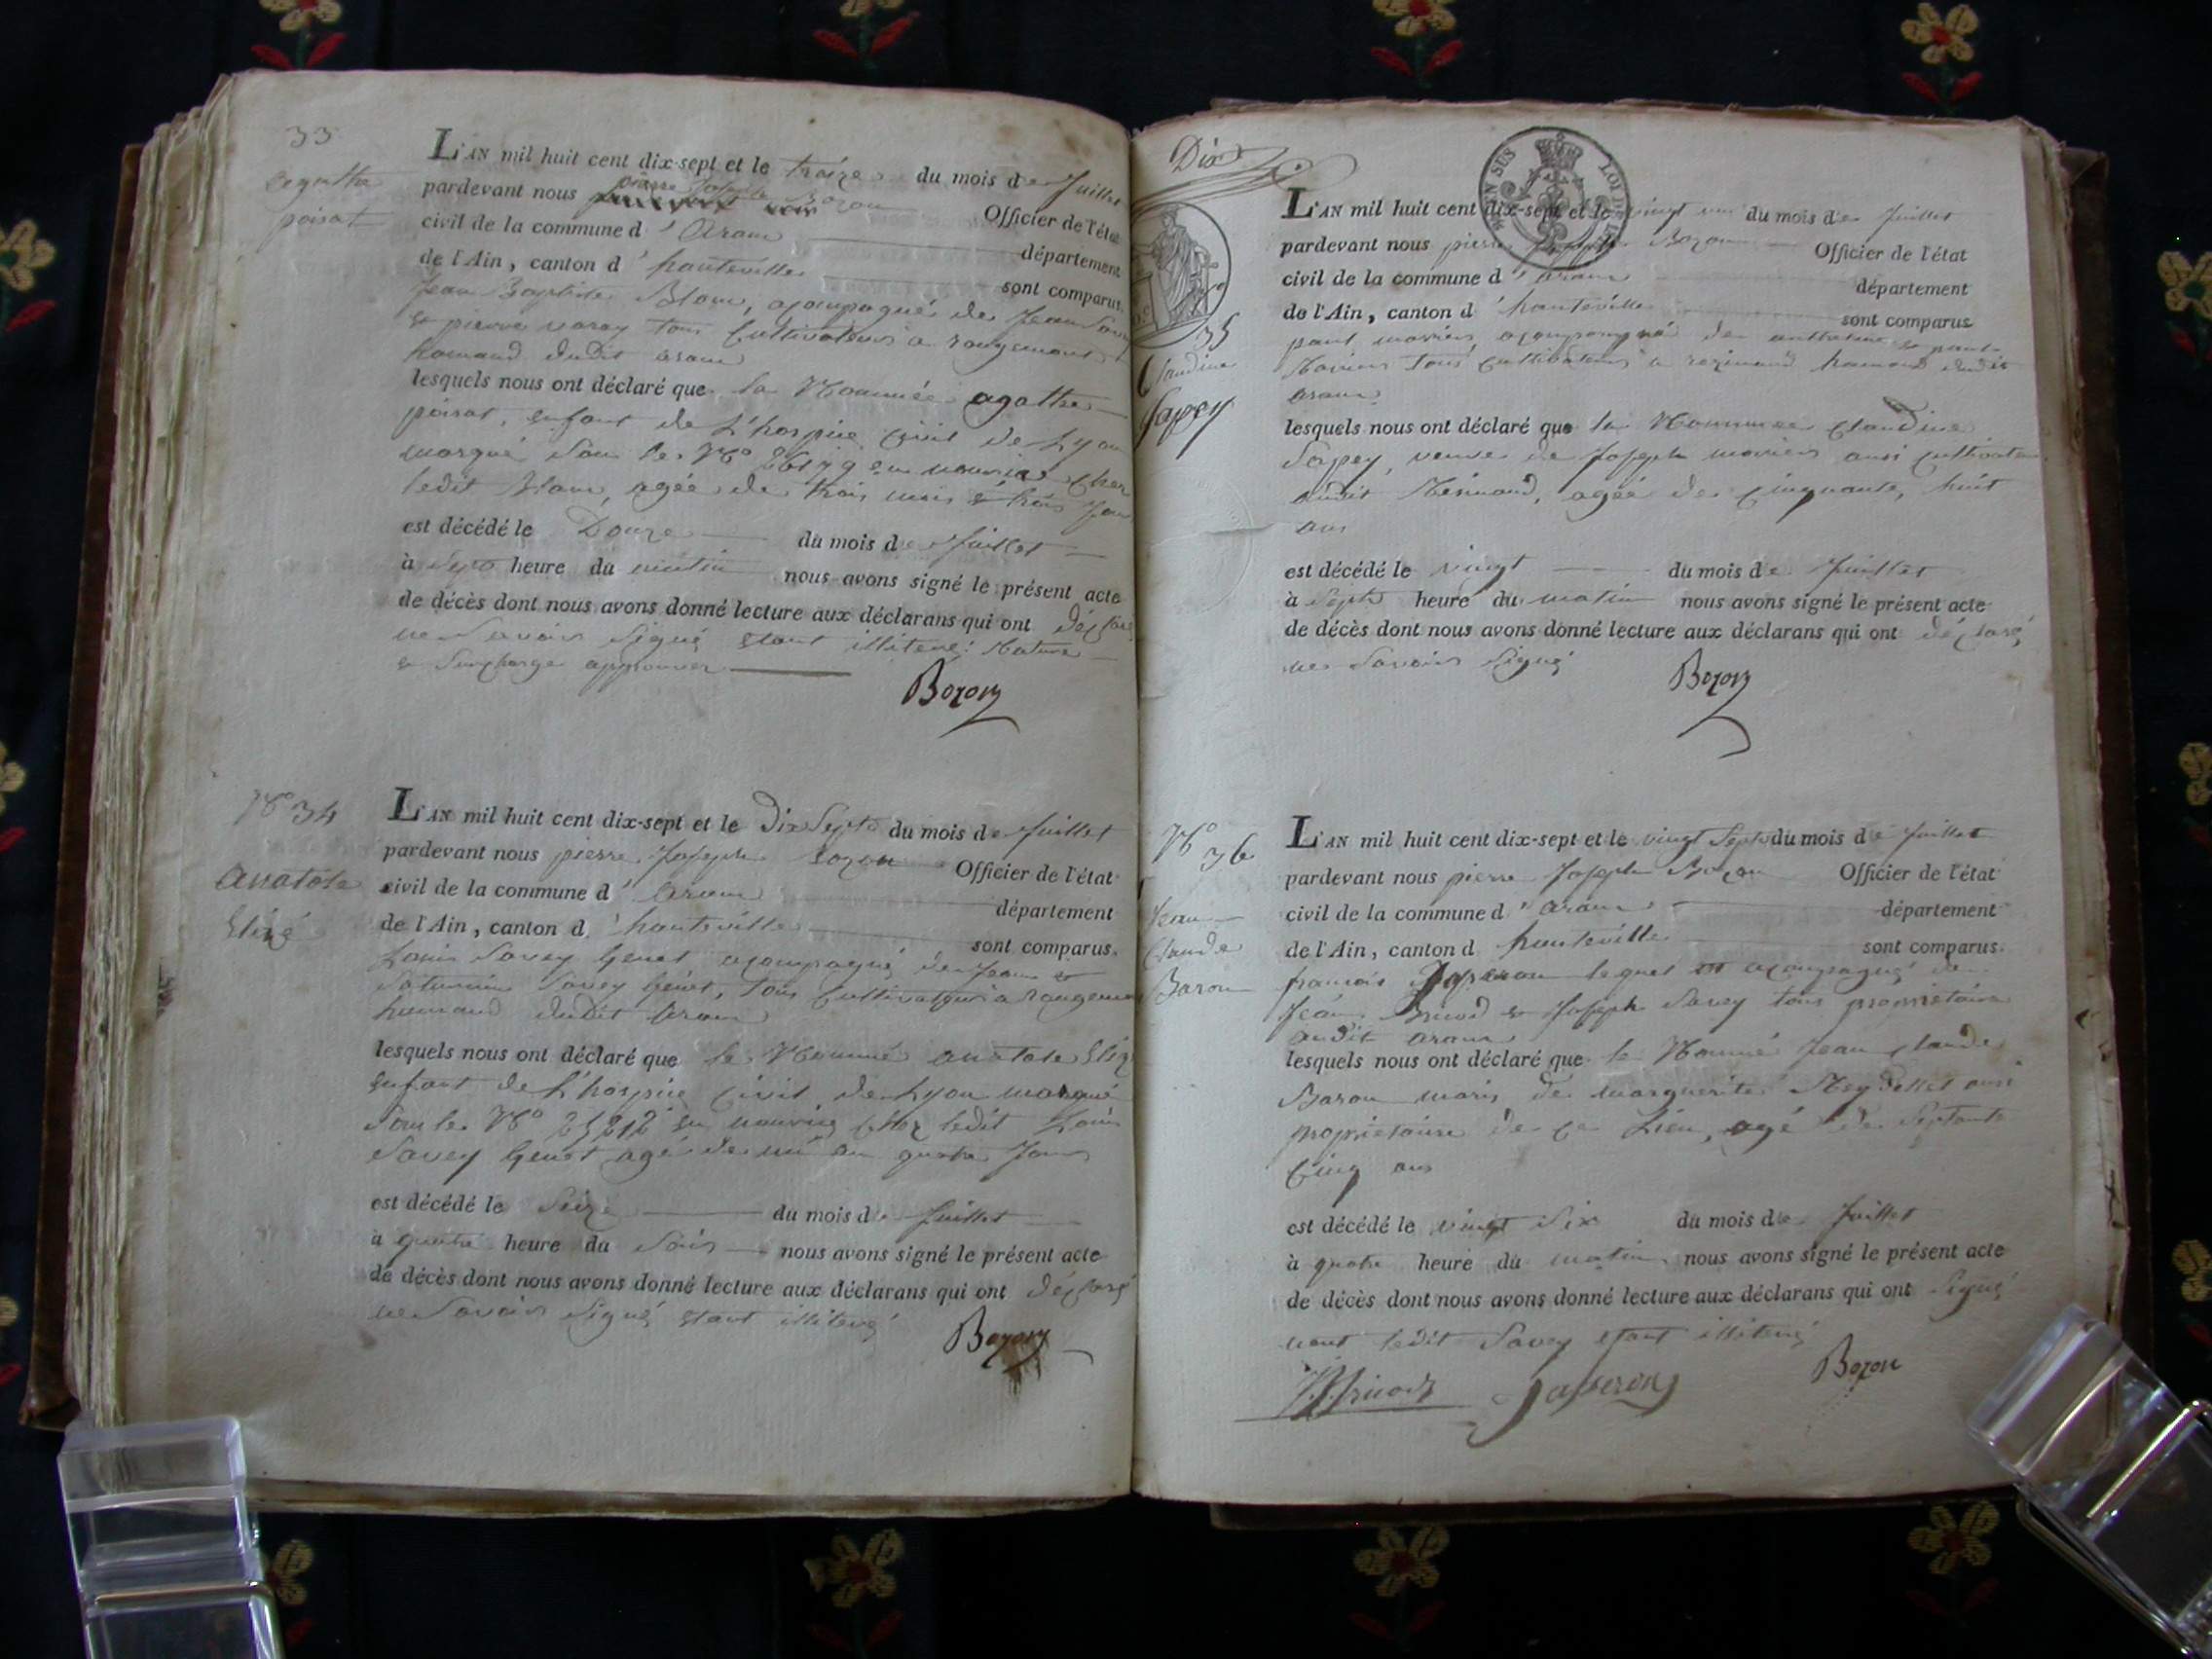 33
agathe
poisat
L'AN mil huit cent dix-sept et le treize du mois de Juillet
pardevant nous pierre Joseph Bozon Officier de l'état
civil de la commune d'aranc
département
de l'Ain, canton d'hauteville
sont comparus
Jean Baptiste Blanc, acompagné de Jean
& pierre varay tous Cultivateurs a rougemont
hamaud dudit aranc
lesquels nous ont déclaré que la Nommée agathe
poisat, enfant de L'hospice Civil de Lyon
marqué Sou le N° en nourice Chez
ledit Blanc, agée de trois mois & trois Jour
est décédé le Douze du mois de Juillet
à Sept heure du matin nous avons signé le présent acte
de décès dont nous avons donné lecture aux déclarans qui ont déclaré
ne Savoir Signé etant illiteré. Rature
& Surcharge approuver
Bozon
N° 34
anatole
Elizé
L'AN mil huit cent dix-sept et le Dix Sept du mois de Juillet
pardevant nous pierre Joseph Bozon Officier de l'état
civil de la commune d'aranc
département
de l'Ain, canton d'hauteville
sont comparus.
Louis Savey Genet acompagné de Jean &
Saturnin Savey Genet, tous Cultivateur a rougemon
hamaud dudit aranc
lesquels nous ont déclaré que le Nommé anatole Eliz
enfant de L'hospice Civil de Lyon marqué
Sou le N° 25212 en nourice Chez ledit Louis
Savey Genet agé de un an quatre Jours
est décédé le Seize du mois de Juillet
à quatre heure du Soir nous avons signé le présent acte
de décès dont nous avons donné lecture aux déclarans qui ont déclaré
ne Savoir Signé etant illiteré
Bozon
Dix
35
Claudine
Sapey
L'AN mil huit cent dix-sept et le vingt un du mois de Juillet
pardevant nous pierre Joseph Bozon Officier de l'état
civil de la commune d'aranc
département
de l'Ain, canton d'hauteville
sont comparus
paul moviers acompagné de
tous Cultivateurs a hamaud dudit
aranc
lesquels nous ont déclaré que la Nommée Claudine
Sapey, veuve de Joseph ausi Cultivate
audit agée de Cinquante, huit
ans
est décédé le vingt du mois de Juillet
à Sept heure du matin nous avons signé le présent acte
de décès dont nous avons donné lecture aux déclarans qui ont déclaré
ne Savoir Signé
Bozon
N° 36
Jean
Claude
Baron
L'AN mil huit cent dix-sept et le vingt Sept du mois de Juillet
pardevant nous pierre Joseph Bozon Officier de l'état
civil de la commune d'aranc
département
de l'Ain, canton d'hauteville
sont comparus.
francois Japeron lequel acompagné de
Jean & Joseph Savey tous proprietaire
audit aranc
lesquels nous ont déclaré que le Nommé Jean Claude
Baron maris de marguerite ausi
proprietaire de Ce Lieu, agé de Septante
Cinq ans
est décédé le vingt Six du mois de Juillet
à quatre heure du matin nous avons signé le présent acte
de décès dont nous avons donné lecture aux déclarans qui ont Signé
nont ledit Savey etant illiteré
Japeron
Bozon